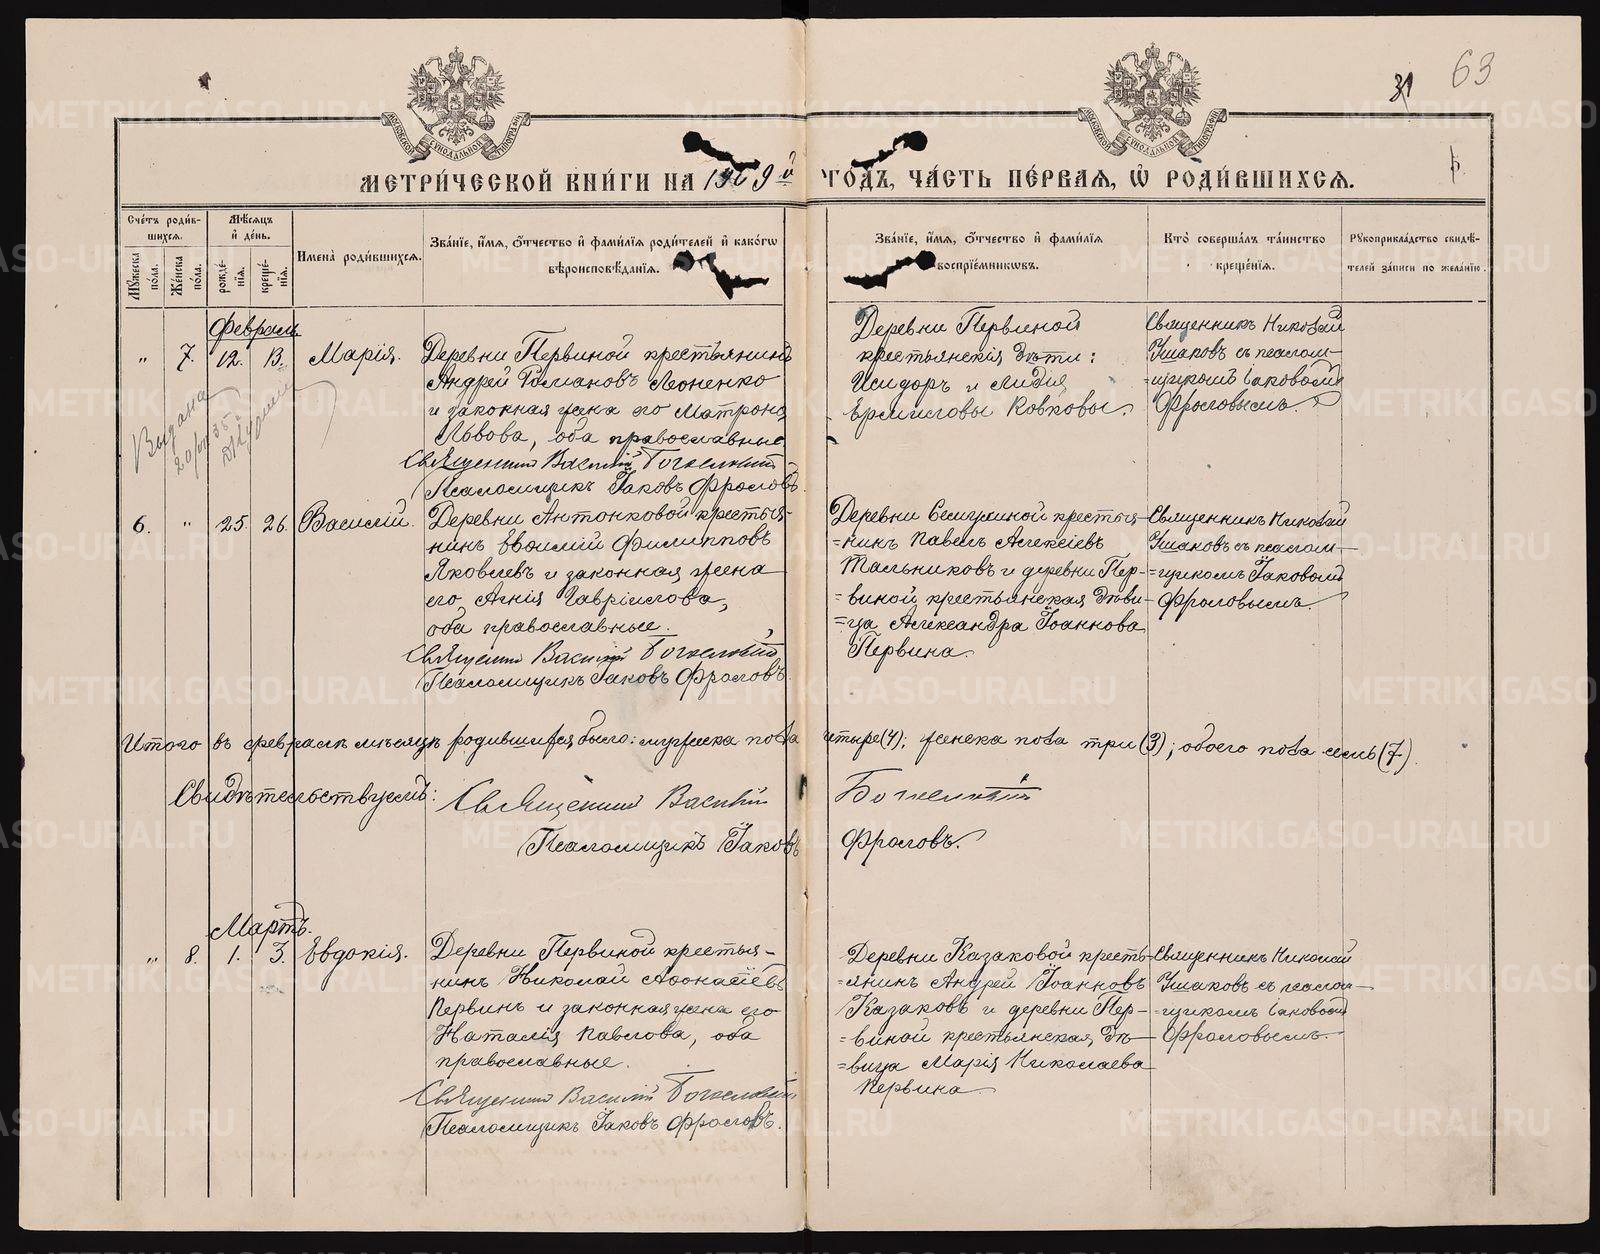 31 63
МЕТРИ́ЧЕСКОЙ КНИ́ГИ НА 1909й ГО́ДЪ, ЧА́СТЬ ПЕ́РВАЯ, Ѡ РОДИ́ВШИХСЯ.
Сче́тъ роди́в-
шихся.
Мѣ́сяцъ
и де́нь.
Мꙋ́жеска по́ла.
Же́нска по́ла.
рожде́-
нїя.
креще́-
нїя.
Имена̀ роди́вшихся.
Зва́нїе, и҆́мя, ѻ҆́тчество и҆ фами́лїя роди́телей и҆ како́гѡ
вѣроисповѣ́данїя.
Зва́нїе, и҆́мя, ѻ҆́тчество и҆ фами́лїя
воспрїе́мникѡвъ.
Кто̀ соверша́лъ та́инство
креще́нїя.
Рꙋкоприкла́дство свидѣ́-
телей за́писи по жела́нїю.
Февраль
„ 7. 12. 13. Марія.
Деревни Первиной крестьянинъ
Андрей Романовъ Леоненко
и законная жена его Матрона
Львова, оба православные
Священникъ Василій
Псаломщикъ Іаковъ Фроловъ.
Деревни Первиной
крестьянскія дѣти:
Исидоръ и Лидія
Ермиловы Ковковы.
Священникъ Николай
Ушаковъ съ псалом-
=щикомъ Іаковомъ
Фроловымъ.
Выдана
6. „ 25. 26. Василій.
Деревни Антонковой крестья-
нинъ Евѳимій Филипповъ
Яковлевъ и законная жена
его Агнія Гавріилова,
оба православные.
Священникъ Василій
Псаломщикъ Іаковъ Фроловъ.
Деревни Семухиной крестья-
=нинъ Павелъ Алексіевъ
Тальниковъ и деревни Пер-
=виной крестьянская дѣви-
=ца Александра Іоаннова
Первина.
Священникъ Николай
Ушаковъ съ псалом-
=щикомъ Іаковомъ
Фроловымъ.
Итого въ февралѣ мѣсяцѣ родившихся было: мужеска пола четыре (4); женска пола три (3); обоего пола семь (7).
Свидѣтельствуемъ: Священникъ Василій
Псаломщикъ Іаковъ Фроловъ.
Мартъ.
„ 8. 1. 3. Евдокія.
Деревни Первиной крестья-
нинъ Николай Аѳонасіевъ
Первинъ и законная жена его
Наталія Павлова, оба
православные.
Священникъ Василій
Псаломщикъ Іаковъ Фроловъ.
Деревни Казаковой кресть-
=янинъ Андрей Іоанновъ
Казаковъ и деревни Пер-
=виной крестьянская дѣ-
=вица Марія Николаева
Первина.
Священникъ Николай
Ушаковъ съ псалом-
=щикомъ Іаковомъ
Фроловымъ.
METRIKI.GASO-URAL.RU